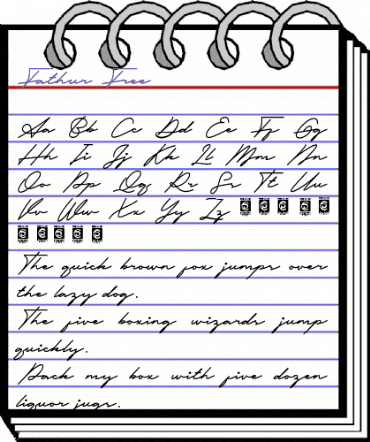 Fathur Free
Aa Bb Cc Dd Ee Ff Gg
Hh Ii Jj Kk Ll Mm Nn
Oo Pp Qq Rr Ss Tt Uu
Vv Ww Xx Yy Zz
The quick brown fox jumps over
the lazy dog.
The five boxing wizards jump
quickly.
Pack my box with five dozen
liquor jugs.